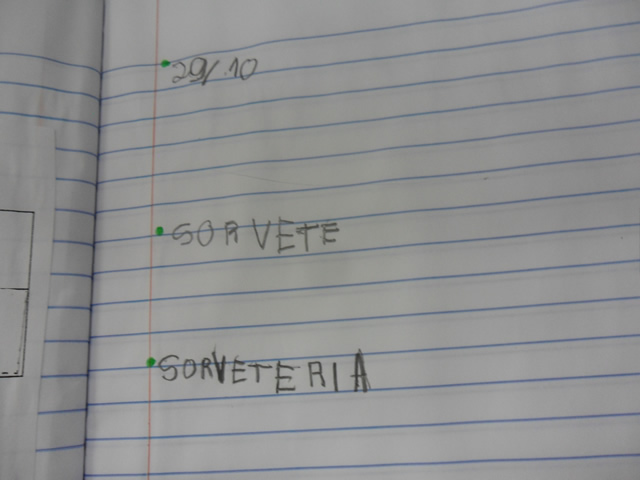 29/10
SORVETE
SORVETERIA